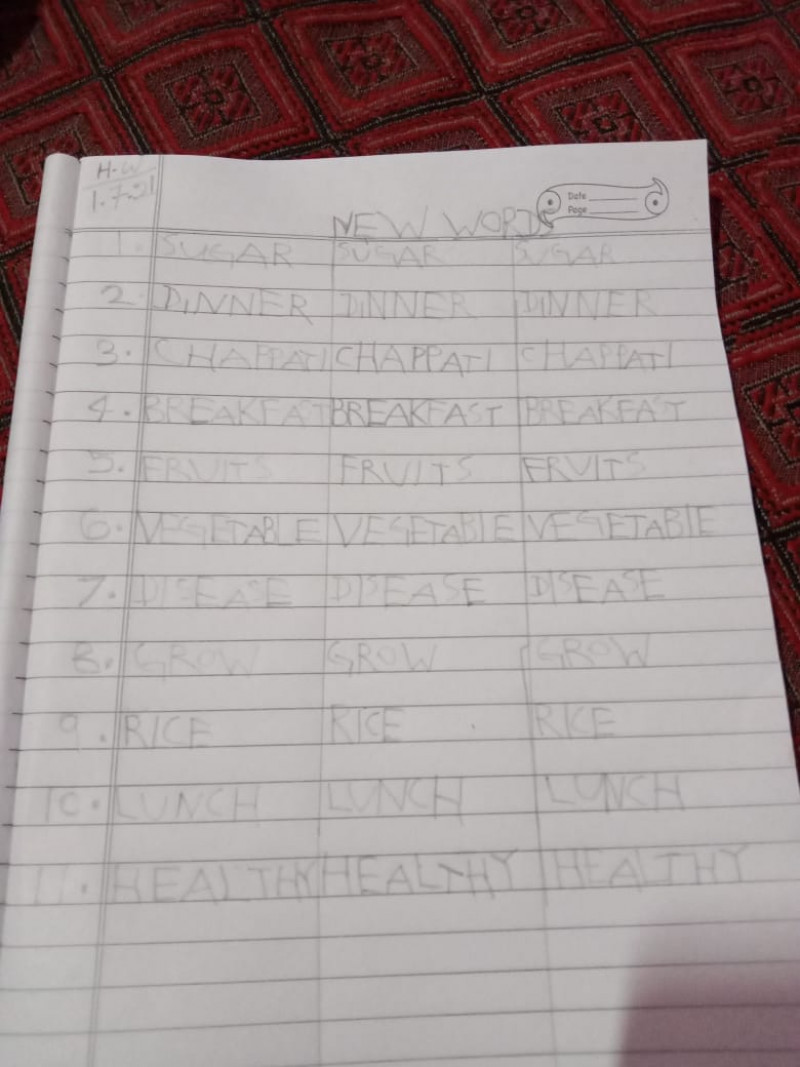 H.W
1.7.21
Date
Page
NEW WORDS
1. SUGAR SUGAR SUGAR
2. DINNER DINNER DINNER
3. CHAPPATI CHAPPATI CHAPPATI
4. BREAKFAST BREAKFAST BREAKFAST
5. FRUITS FRUITS FRUITS
6. VEGETABLE VEGETABLE VEGETABLE
7. DISEASE DISEASE DISEASE
8. GROW GROW GROW
9. RICE RICE RICE
10. LUNCH LUNCH LUNCH
11. HEALTHY HEALTHY HEALTHY